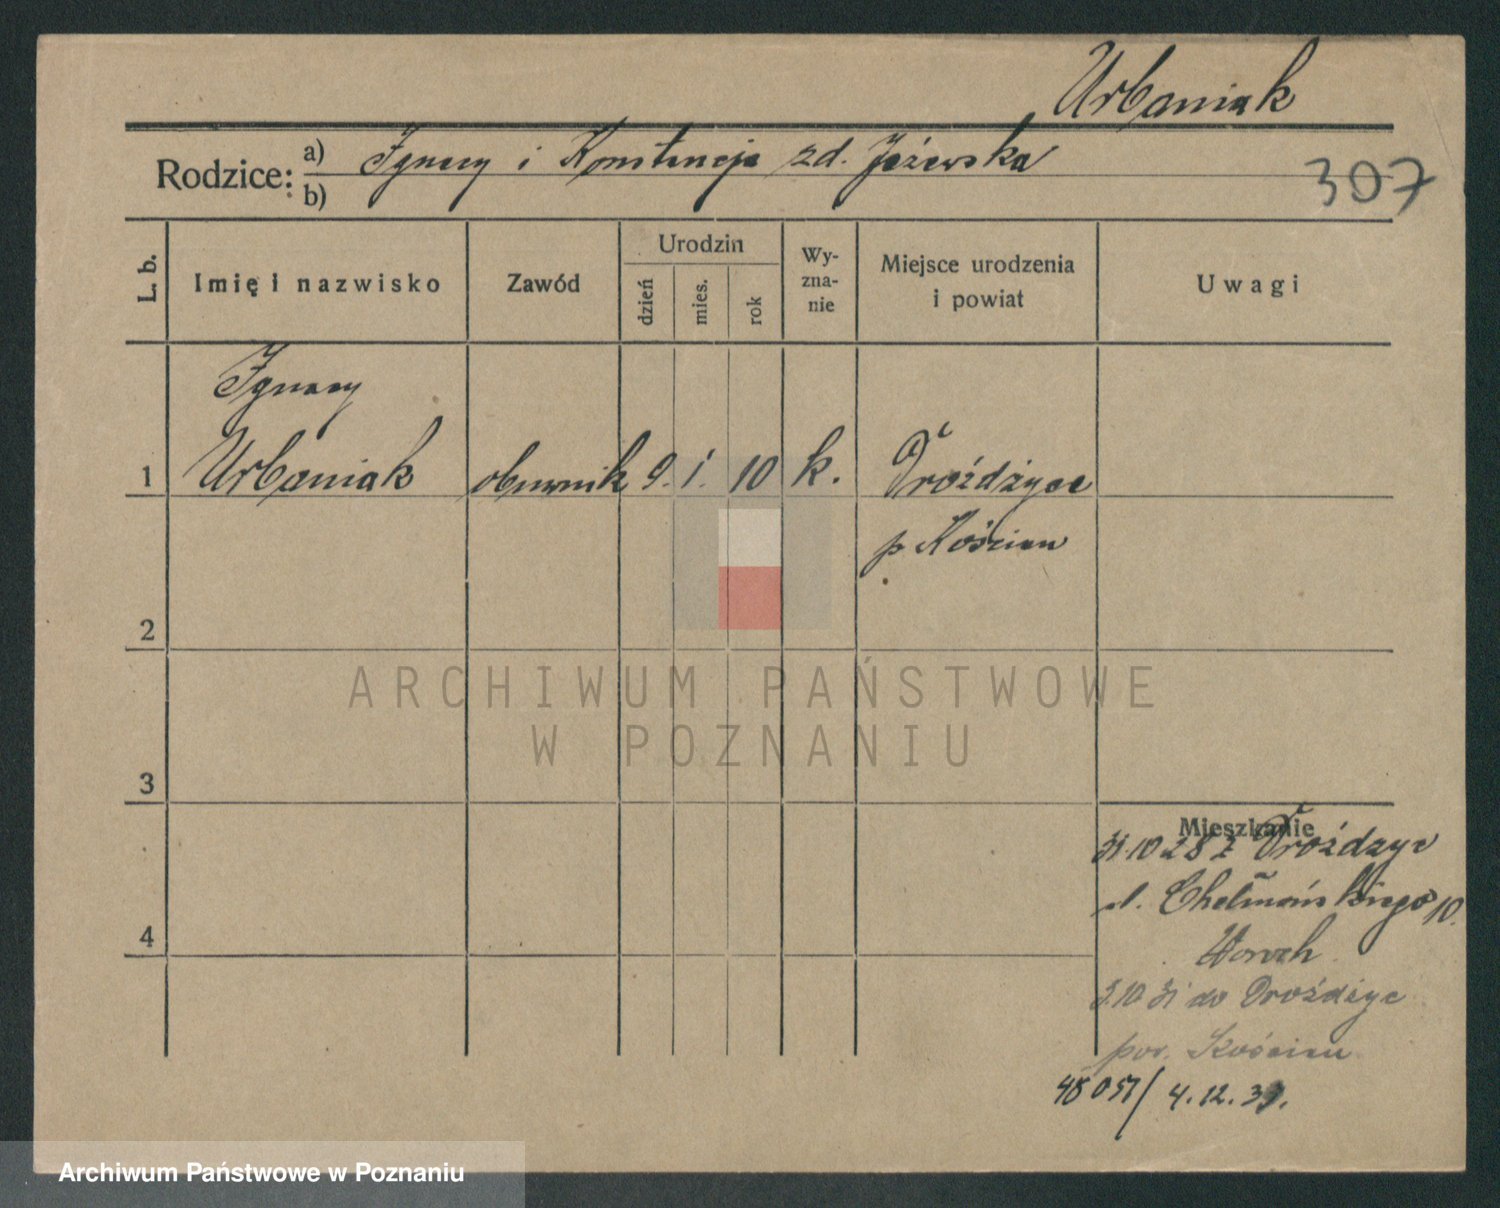 Urbaniak
Rodzice: a) Ignacy i Konstancja zd. Jeżewska
b)
307
L. b.
Imię i nazwisko
Zawód
Urodzin
dzień
mies.
rok
Wy-
zna-
nie
Miejsce urodzenia
i powiat
Uwagi
Ignacy
1 Urbaniak obuwnik 9. 1. 10 k. Drożdżyce
p Kościan
2
ARCHIWUM PAŃSTWOWE
W POZNANIU
3
Mieszkanie
31.10 28 z Drożdżyc
ul. Chełmońskiego 10.
3.10 31 do Drożdżyc
pow. Kościan
4
48051/ 4.12.31.
Archiwum Państwowe w Poznaniu